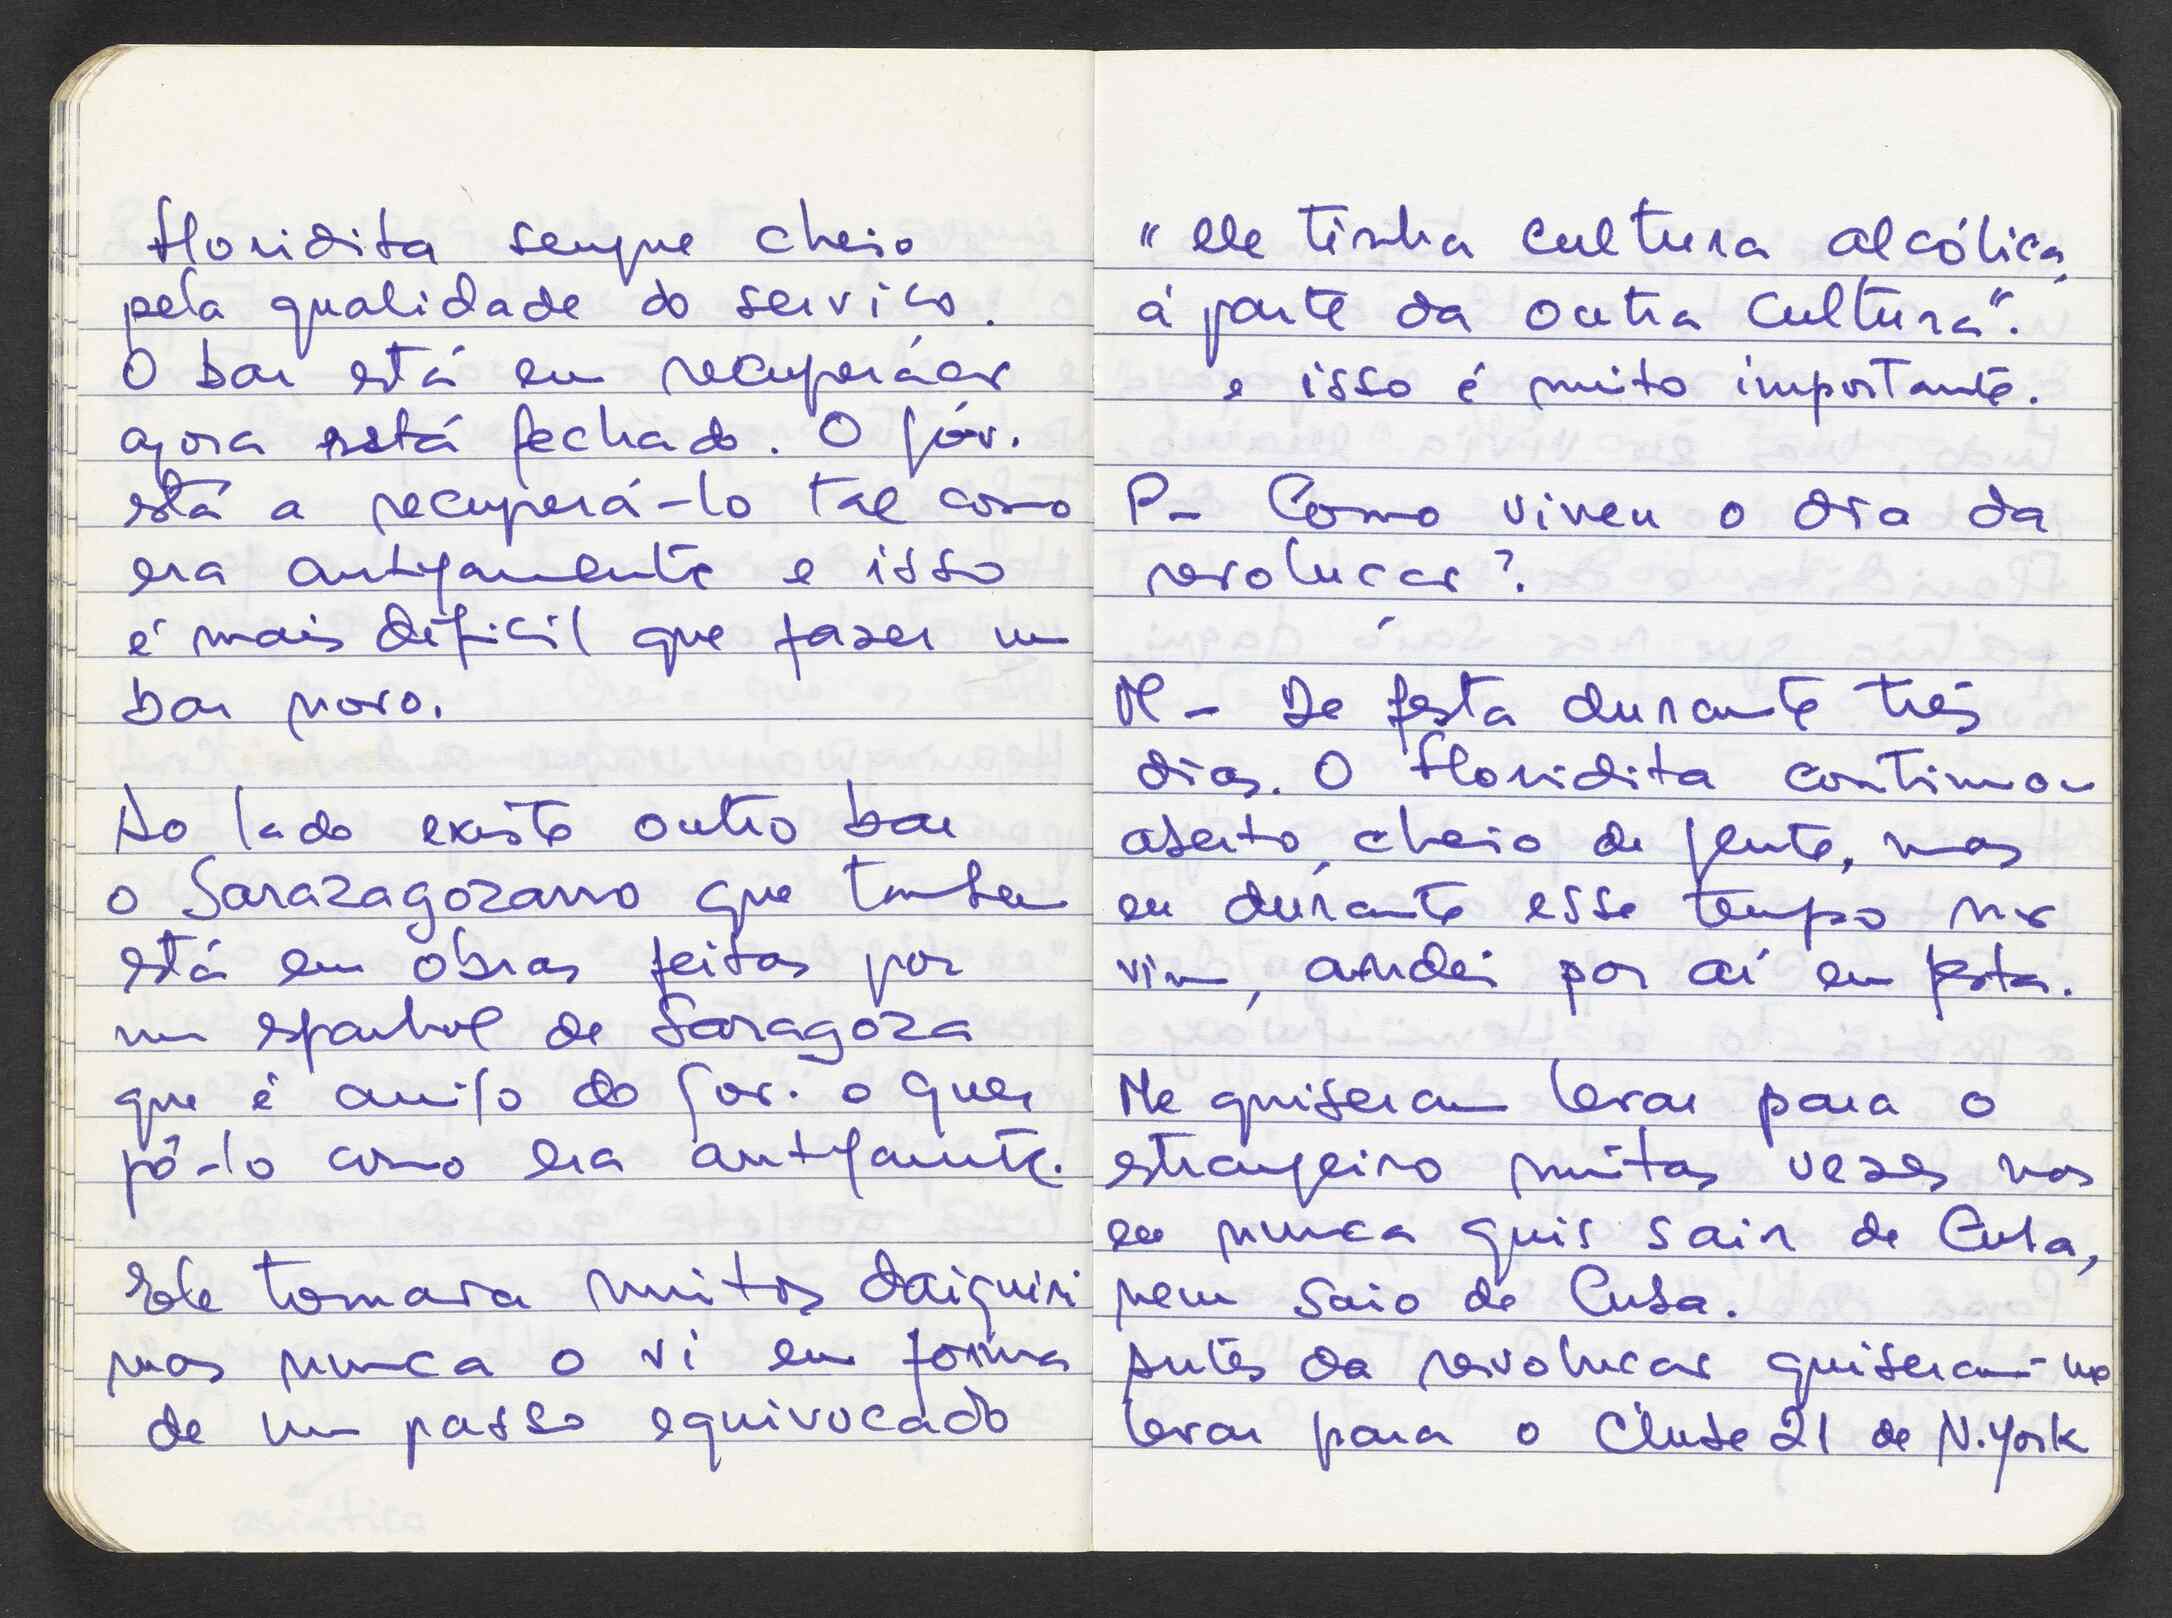 Floridita sempre cheio
pela qualidade do serviço.
O bar está em recuperação
agora está fechado. O gov.
está a recuperá-lo tal como
era antigamente e isso
é mais difícil que fazer um
bar novo.
Ao lado existe outro bar
o Sarazagozano que tambem
está em obras feitas por
um espanhol de Saragoza
que é amigo do gov. o quer
pô-lo como era antigamente.
Ele tomava muitos daiquiri
mas nunca o vi em forma
de um passo equivocado
"ele tinha cultura alcólica,
á parte da outra cultura".
e isso é muito importante.
P- Como viveu o dia da
revolução?
M - De festa durante três
dias. O Floridita continuou
aberto, cheio de gente, mas
eu durante esse tempo não
vim, andei por aí em festa.
Me quiseram levar para o
estrangeiro muitas vezes mas
eu nunca quis sair de Cuba,
nem saio de Cuba.
Antes da revolução quiseram-me
levar para o Clube 21 de N.York